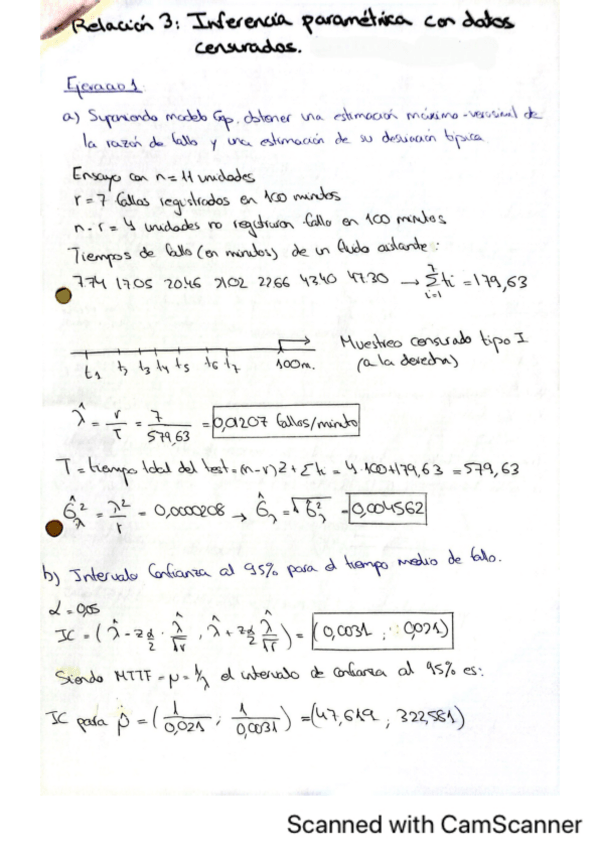 Relación 3: Inferencia paramétrica con datos
censurados.
Ejercicio 1
a) Suponiendo modelo Exp. obtener una estimación máximo-verosímil de
la razón de fallo y una estimación de su desviación típica
Ensayo con n = 11 unidades
r = 7 fallos registrados en 100 minutos
n - r = 4 unidades no registraron fallo en 100 minutos
Tiempos de fallo (en minutos) de un fluido aislante:
7.74 17.05 20.46 21.02 22.66 43.40 47.30 → Σ ti = 179,63
i=1
t1 t2 t3 t4 t5 t6 t7 100m.
Muestreo censurado tipo I
(a la derecha)
λ̂ = r/T = 7/579,63 = 0,01207 fallos/minuto
T = tiempo total del test = (n-r)τ + Σti = 4·100+179,63 = 579,63
σ̂²λ = λ̂²/r = 0,0000208 → σ̂λ = √σ̂²λ = 0,004562
b) Intervalo Confianza al 95% para el tiempo medio de fallo.
α = 0,05
IC = (λ̂ - zα/2 · λ̂/√r , λ̂ + zα/2 λ̂/√r) = (0,0031 ; 0,021)
Siendo MTTF = μ = 1/λ el intervalo de confianza al 95% es:
IC para μ̂ = (1/0,021 ; 1/0,0031) = (47,619 ; 322,581)
Scanned with CamScanner